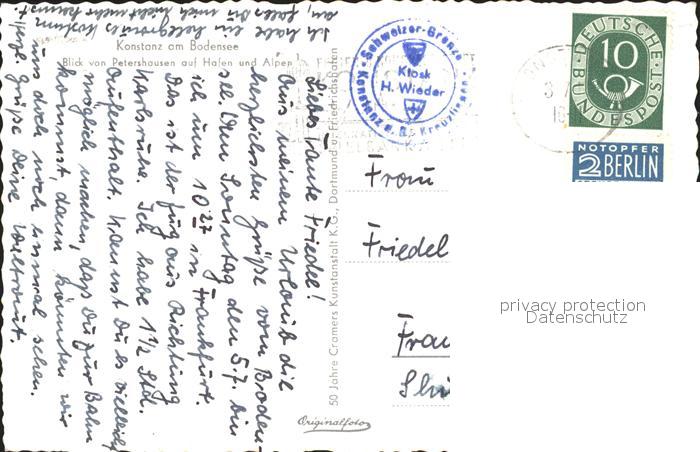 Konstanz am Bodensee
Blick von Petershausen auf Hafen und Alpen
Liebe Tante Friedel!
Aus meinem Urlaub die
herzlichsten Grüße vom Boden
see. Am Sonntag den 5.7. bin
ich um 10 27 in Frankfurt.
Das ist der Zug aus Richtung
Karlsruhe. Ich habe 1 1/2 Std.
Aufenthalt. Kannst Du es vielleicht
möglich machen, daß Du zur Bahn
kommst, dann könnten wir
uns doch noch einmal sehen.
Herzl. Grüße Deine Waltraut.
Ich habe ein hellgraues Kostüm
an, falls Du mich nicht mehr kennst.
50 Jahre Cramers Kunstanstalt K.G., Dortmund
Originalfoto
Schweizer-Grenze
Kiosk
H. Wieder
Konstanz a. B. Kreuzlingen
DEUTSCHE
BUNDESPOST
10
NOTOPFER
2 BERLIN
Frau
Friedel
Frau
privacy protection
Datenschutz